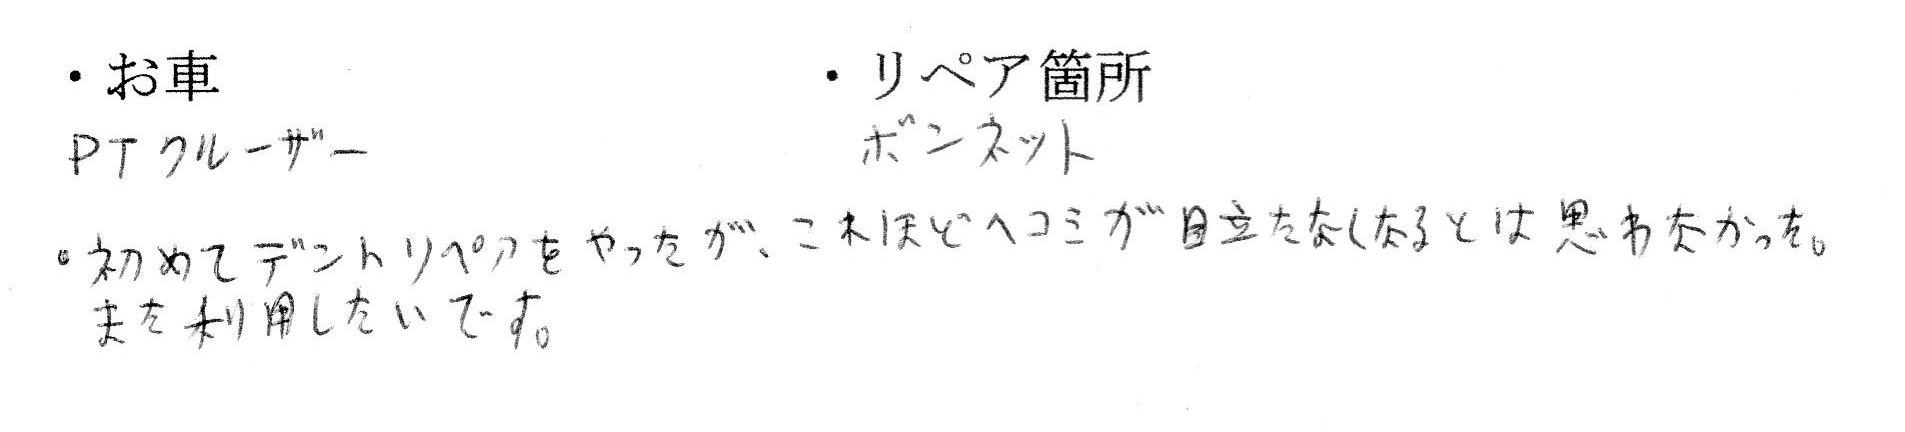 ・お車
・リペア箇所
PTクルーザー
ボンネット
。初めてデントリペアをやったが、これほどヘコミが目立たなくなるとは思わなかった。
また利用したいです。